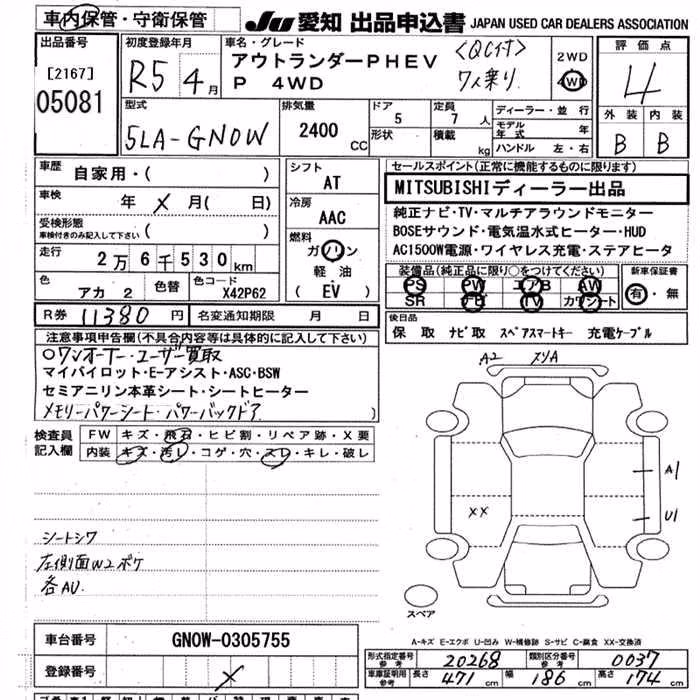 車内保管・守衛保管
JU 愛知 出品申込書 JAPAN USED CAR DEALERS ASSOCIATION
出品番号
[2167]
05081
初度登録年月
R5 4月
車名・グレード
アウトランダーPHEV
P 4WD
〈QC付〉
7人乗り.
2WD
4WD
評価点
4
外装 内装
B B
型式
5LA-GN0W
排気量
2400 CC
ドア
5
形状
定員
7 人
積載
kg
ディーラー・並行
モデル年式 年
ハンドル 左・右
車歴
自家用・( )
車検
年 X 月( 日)
受検形態
車検付きのみ記入して下さい ( )
走行
2万6千530km
色
アカ 2
色替
色コード
X42P62
シフト
AT
冷房
AAC
燃料
ガソリン
軽油
( EV )
セールスポイント(正常に機能するものに限ります)
MITSUBISHIディーラー出品
純正ナビ・TV・マルチアラウンドモニター
BOSEサウンド・電気温水式ヒーター・HUD
AC1500W電源・ワイヤレス充電・ステアヒータ
装備品(純正品に限り○をつけてください)
PS PW エアB AW
SR ナビ TV カワシート
新車保証書
有・無
R券 11380 円 名変通知期限 月 日
後日品
保 取 ナビ取 スペアスマートキー 充電ケーブル
注意事項申告欄(不具合内容等は具体的に記入して下さい)
○ワンオーナー・ユーザー買取
マイパイロット・E-アシスト・ASC・BSW
セミアニリン本革シート・シートヒーター
メモリーパワーシート・パワーバックドア )
検査員記入欄
FW キズ・飛石・ヒビ割・リペア跡・X要
内装 キズ・汚レ・コゲ・穴・スレ・キレ・破レ
A2 スリA
A1
XX
U1
シートシワ
左側面W2ボケ
各AU.
スペア
A-キズ E-エクボ U-凹み W-補修跡 S-サビ C-腐食 XX-交換済
車台番号 GN0W-0305755
登録番号 X
形式指定番号 参考 20268 類別区分番号 参考 0037
車庫証明用 参考 長さ 471 cm 幅 186 cm 高さ 174 cm